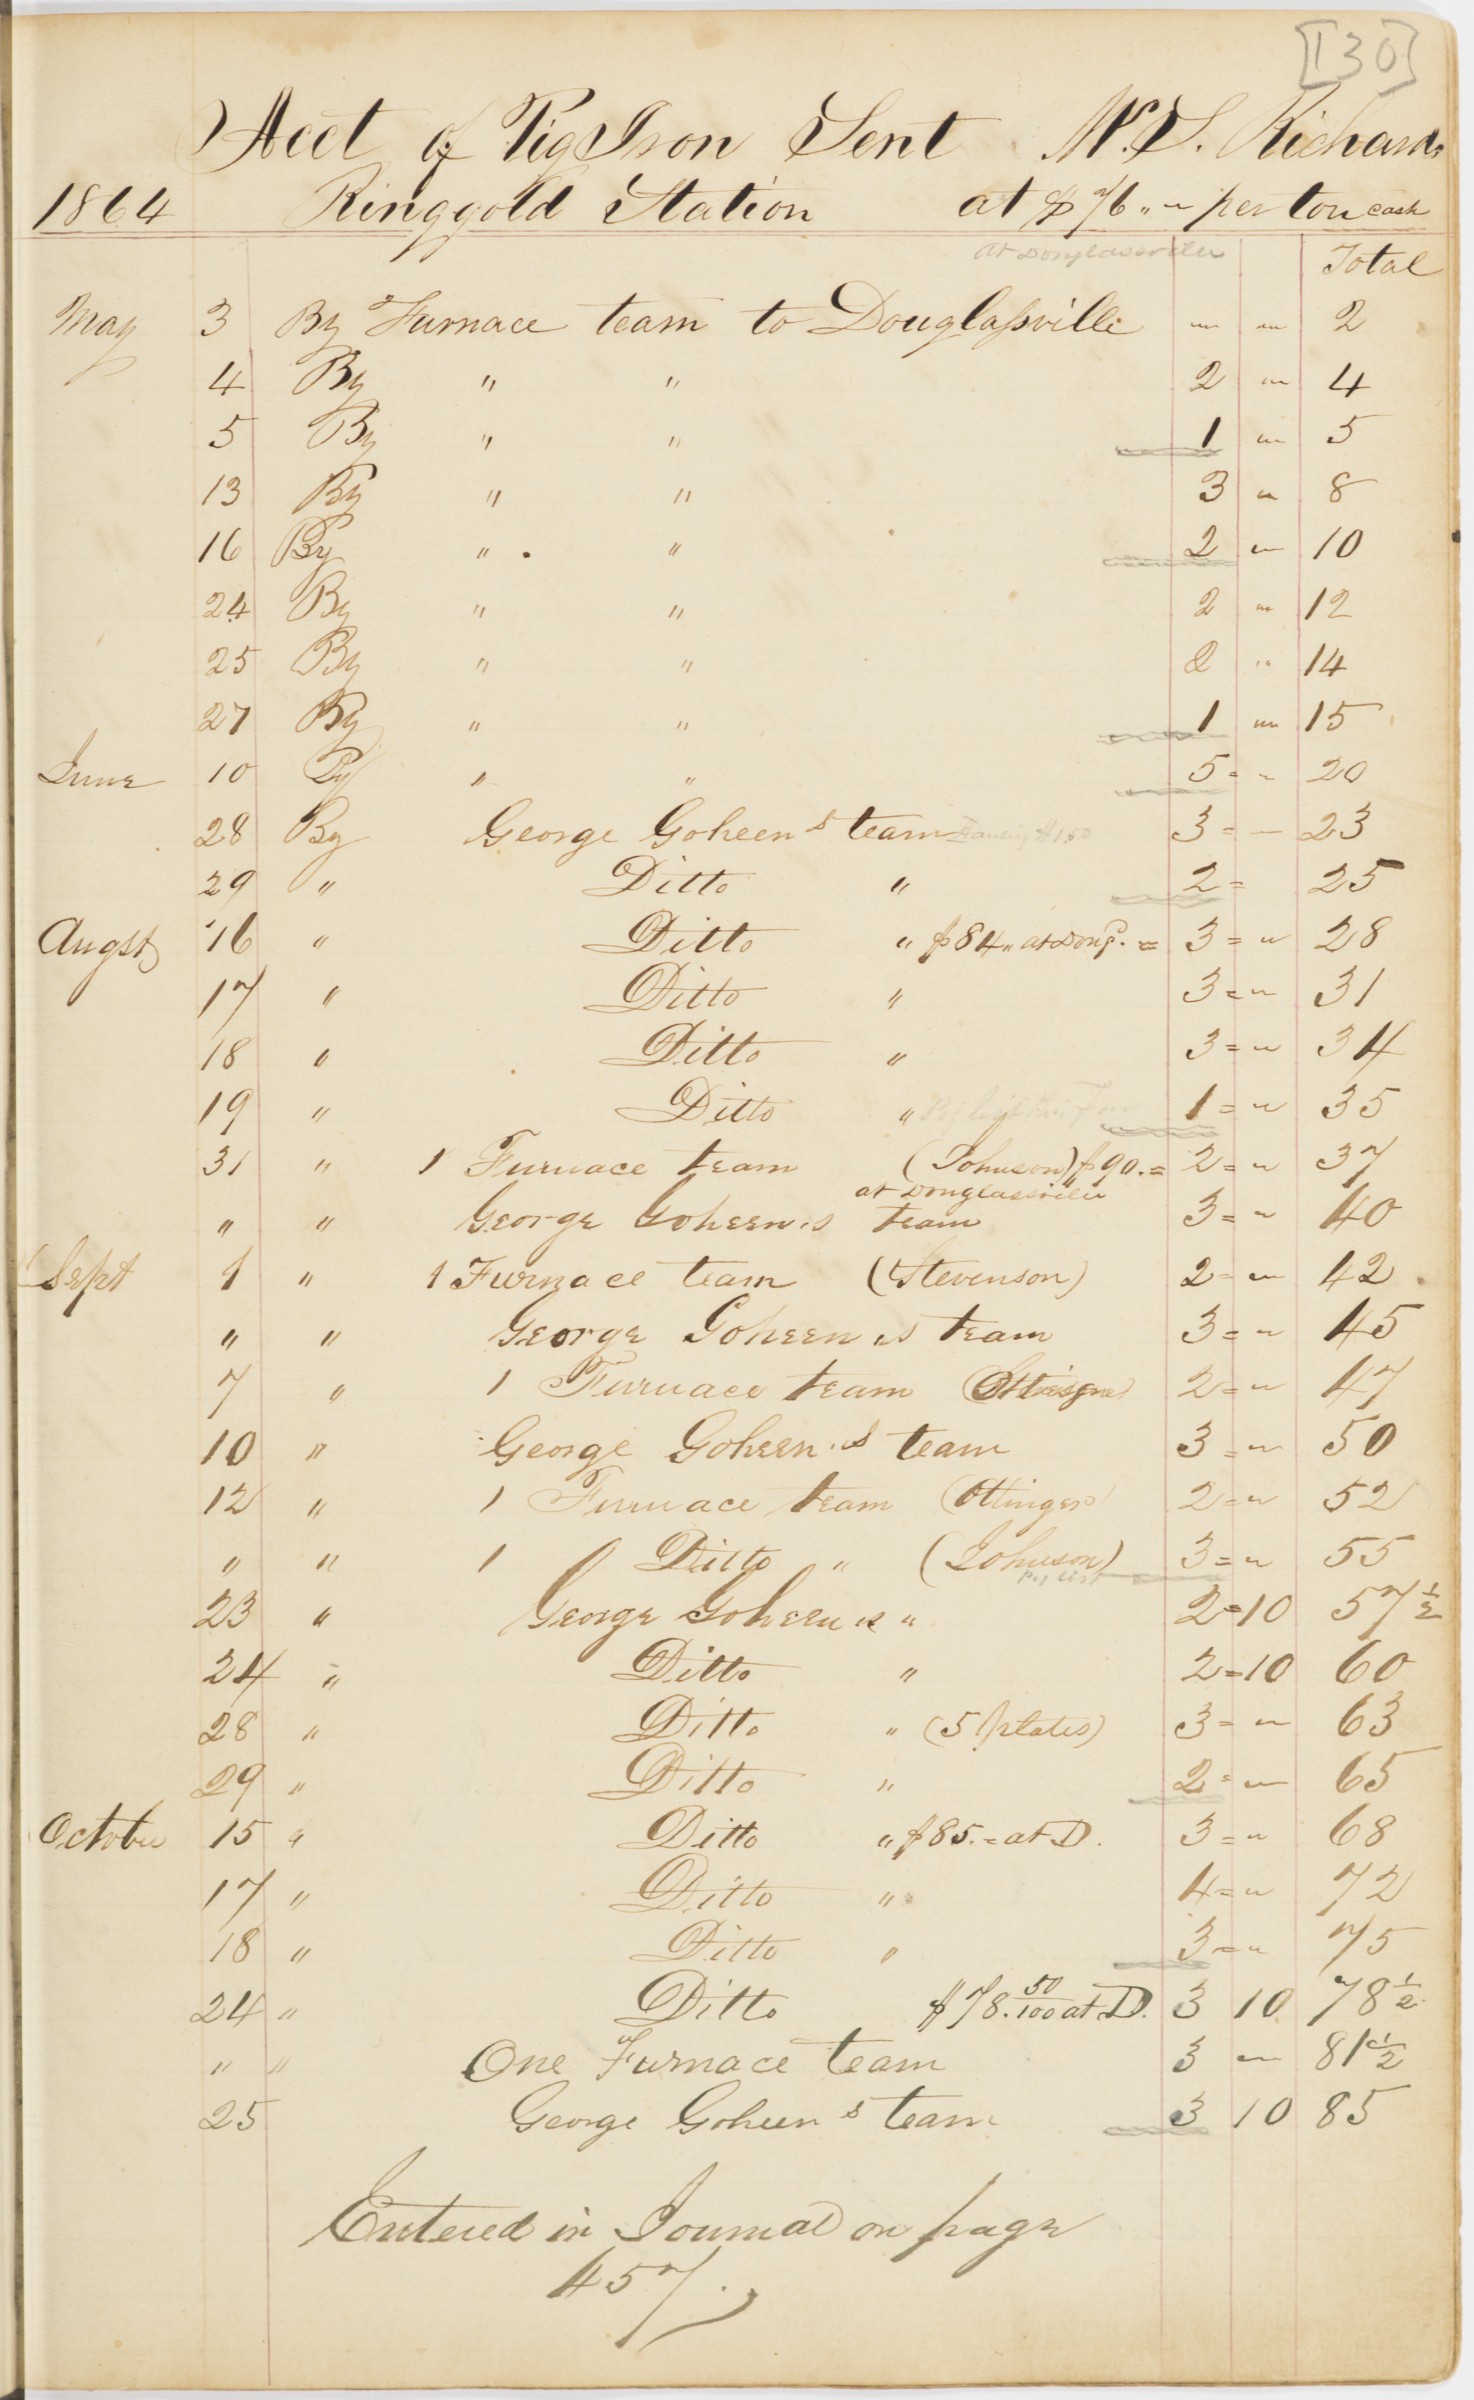 [130]
Acct of Pig Iron Sent W. S. Richards
1864 Ringgold Station at $76 „ ~ per ton cash
At Douglassville Total
May 3 By Furnace team to Douglassville " " 2
4 By " " 2 " 4
5 By " " 1 " 5
13 By " " 3 " 8
16 By " " 2 " 10
24 By " " 2 " 12
25 By " " 2 " 14
27 By " " 1 " 15
June 10 By " " 5 = " 20
28 By George Goheen s team Hauling $1.50 3 = " 23
29 " Ditto " 2 = 25
Augst 16 " Ditto " $84 „ at Doug. = 3 = " 28
17 " Ditto " 3 = " 31
18 " Ditto " 3 = " 34
19 " Ditto " 1 = " 35
31 " 1 Furnace team (Johnson) $90. = 2 = " 37
at Douglassville
" " George Goheen s team 3 = " 40
Sept 1 " 1 Furnace team (Stevenson) 2 = " 42
" " George Goheen s team 3 = " 45
7 " 1 Furnace team 2 = " 47
10 " George Goheen s team 3 = " 50
12 " 1 Furnace team (Ottinger) 2 = " 52
" " 1 Ditto " (Johnson) 3 = " 55
23 " George Goheen s " 2 = 10 57 1/2
24 " Ditto " 2 = 10 60
28 " Ditto " (5 plates) 3 = " 63
29 " Ditto " 2 = " 65
October 15 " Ditto " $85. = at D. 3 = " 68
17 " Ditto " 4 = " 72
18 " Ditto " 3 = " 75
24 " Ditto $78. 50/100 at D. 3 10 78 1/2
" " One Furnace team 3 " 81 1/2
25 George Goheen s team 3 10 85
Entered in Journal on page
457.